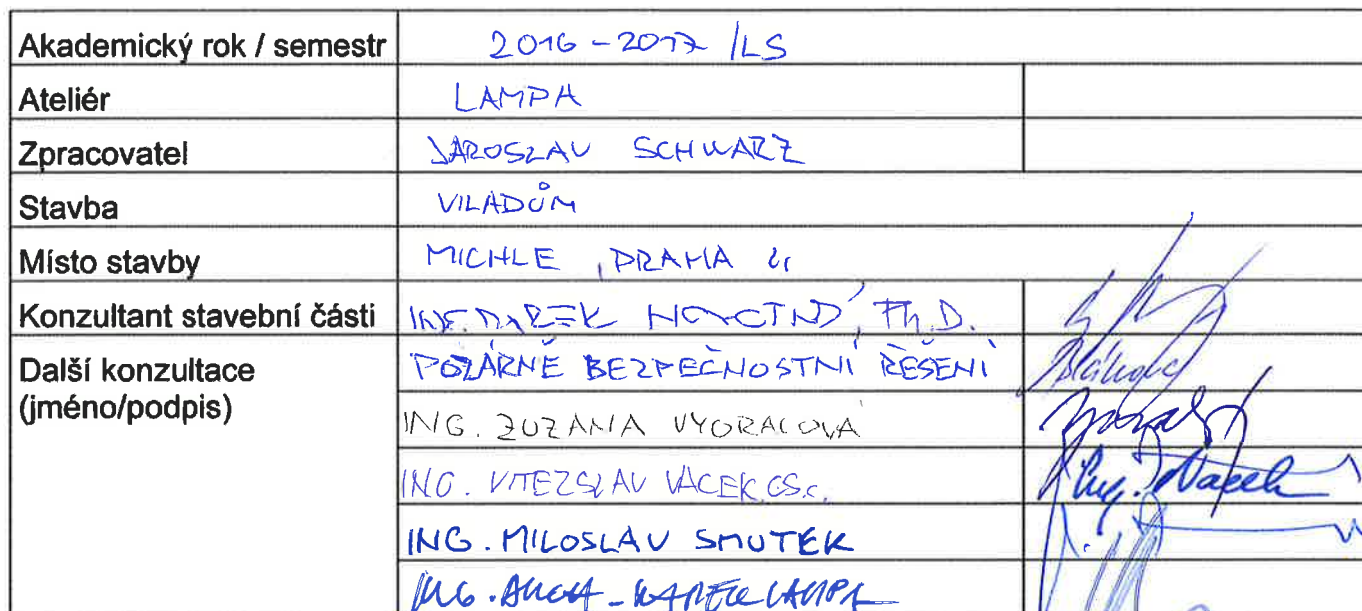 Akademický rok / semestr 2016-2017 /LS
Ateliér LAMPA
Zpracovatel JAROSLAV SCHWARZ
Stavba VILADŮM
Místo stavby MICHLE, PRAHA 4
Konzultant stavební části ING. MAREK NOVOTNÝ, Ph.D.
Další konzultace POŽÁRNĚ BEZPEČNOSTNÍ ŘEŠENÍ
(jméno/podpis)
ING. ZUZANA VYORALOVÁ
ING. VÍTEZSLAV VACEK CSc. Ing. Vacek
ING. MILOSLAV SMUTEK
ING. KAREL LAMPA